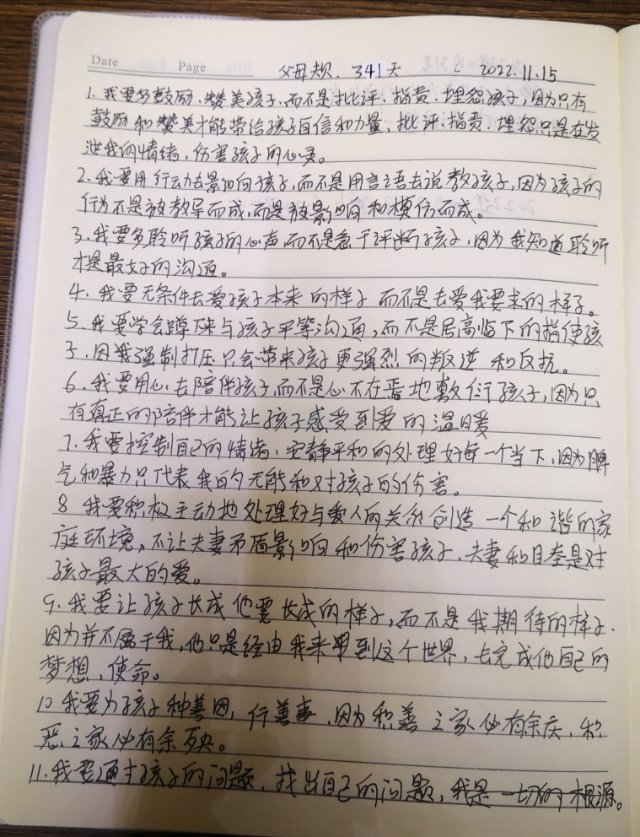 Date
Page
父母规. 341天 2022.11.15
1. 我要多鼓励、赞美孩子,而不是批评、指责、埋怨孩子,因为只有
鼓励和赞美才能带给孩子自信和力量,批评、指责、埋怨只是在发
泄我的情绪,伤害孩子的心灵。
2. 我要用行动去影响孩子,而不是用言语去说教孩子,因为孩子的
行为不是被教导而成,而是被影响和模仿而成。
3. 我要多聆听孩子的心声,而不是急于评断孩子,因为我知道聆听
才是最好的沟通。
4. 我要无条件去爱孩子本来的样子而不是去爱我要求的样子。
5. 我要学会蹲下来与孩子平等沟通,而不是居高临下的指使孩
子,因我强制打压只会带来孩子更强烈的叛逆和反抗。
6. 我要用心去陪伴孩子,而不是心不在焉地敷衍孩子,因为只
有真正的陪伴才能让孩子感受到爱的温暖
7. 我要控制自己的情绪,安静平和的处理好每一个当下,因为脾
气和暴力只代表我的无能和对孩子的伤害。
8 我要积极主动地处理好与爱人的关系创造一个和谐的家
庭环境,不让夫妻矛盾影响和伤害孩子,夫妻和睦是对
孩子最大的爱。
9. 我要让孩子长成他要长成的样子,而不是我期待的样子.
因为并不属于我,他只是经由我来到这个世界,去完成他自己的
梦想,使命。
10 我要为孩子种善因,行善事,因为积善之家必有余庆,积
恶之家必有余殃。
11. 我要通过孩子的问题,找出自己的问题,我是一切的根源。